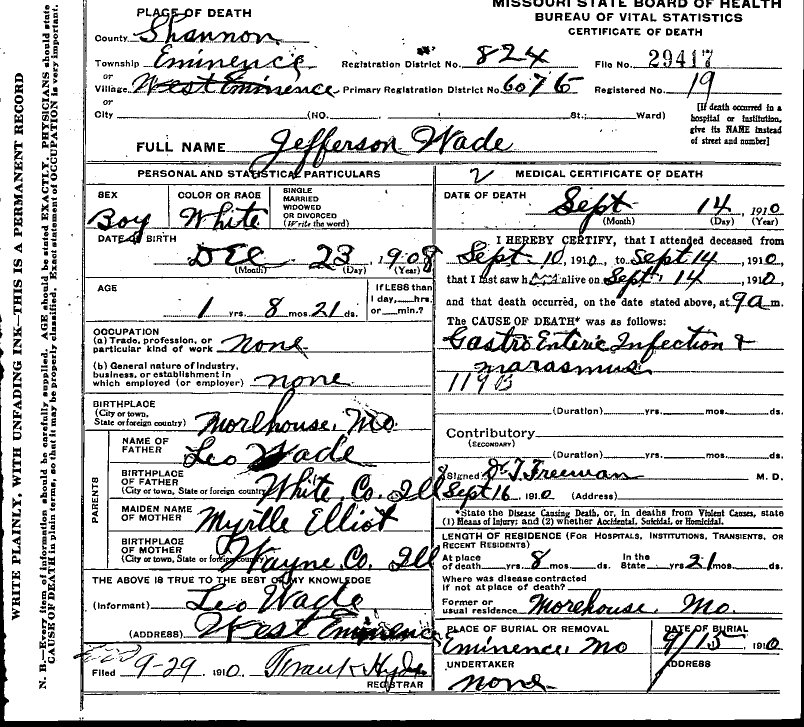 MISSOURI STATE BOARD OF HEALTH
BUREAU OF VITAL STATISTICS
CERTIFICATE OF DEATH
PLACE OF DEATH
County Shannon
Township Eminence Registration District No. 824 File No. 29417
or
Village West Eminence Primary Registration District No. 6076 Registered No. 19
or
City (NO. St.; Ward)
[If death occurred in a
hospital or institution,
give its NAME instead
of street and number]
FULL NAME Jefferson Wade
PERSONAL AND STATISTICAL PARTICULARS
SEX Boy
COLOR OR RACE White
SINGLE
MARRIED
WIDOWED
OR DIVORCED
(Write the word)
DATE OF BIRTH
Dec 23, 1908
(Month) (Day) (Year)
AGE
1 yrs. 8 mos. 21 ds.
If LESS than
1 day, hrs.
or min.?
OCCUPATION
(a) Trade, profession, or
particular kind of work none
(b) General nature of industry,
business, or establishment in
which employed (or employer) none
BIRTHPLACE
(City or town,
State or foreign country) Morehouse, Mo.
PARENTS
NAME OF
FATHER Leo Wade
BIRTHPLACE
OF FATHER
(City or town, State or foreign country) White Co. Ill
MAIDEN NAME
OF MOTHER Myrtle Elliot
BIRTHPLACE
OF MOTHER
(City or town, State or foreign country) Wayne Co. Ill
THE ABOVE IS TRUE TO THE BEST OF MY KNOWLEDGE
(Informant) Leo Wade
(ADDRESS) West Eminence
Filed 9-29 1910 Frank Hyde
REGISTRAR
2 MEDICAL CERTIFICATE OF DEATH
DATE OF DEATH
Sept 14, 1910
(Month) (Day) (Year)
I HEREBY CERTIFY, that I attended deceased from
Sept 10, 1910, to Sept 14, 1910,
that I last saw h alive on Sept 14, 1910,
and that death occurred, on the date stated above, at 9 a m.
The CAUSE OF DEATH* was as follows:
Gastro Enteric Infection &
marasmus
119B
(Duration) yrs. mos. ds.
Contributory
(SECONDARY)
(Duration) yrs. mos. ds.
(Signed) J. T. Freeman M. D.
Sept 16, 1910 (Address)
*State the Disease Causing Death, or, in deaths from Violent Causes, state
(1) Means of Injury; and (2) whether Accidental, Suicidal, or Homicidal.
LENGTH OF RESIDENCE (FOR HOSPITALS, INSTITUTIONS, TRANSIENTS, OR
RECENT RESIDENTS)
At place
of death yrs. 8 mos. ds. In the
State yrs. 21 mos. ds.
Where was disease contracted
if not at place of death?
Former or
usual residence Morehouse, Mo.
PLACE OF BURIAL OR REMOVAL
Eminence, Mo
DATE OF BURIAL
9/15 1910
UNDERTAKER
none
ADDRESS
WRITE PLAINLY, WITH UNFADING INK—THIS IS A PERMANENT RECORD
N. B.—Every item of information should be carefully supplied. AGE should be stated EXACTLY. PHYSICIANS should state
CAUSE OF DEATH in plain terms, so that it may be properly classified. Exact statement of OCCUPATION is very important.